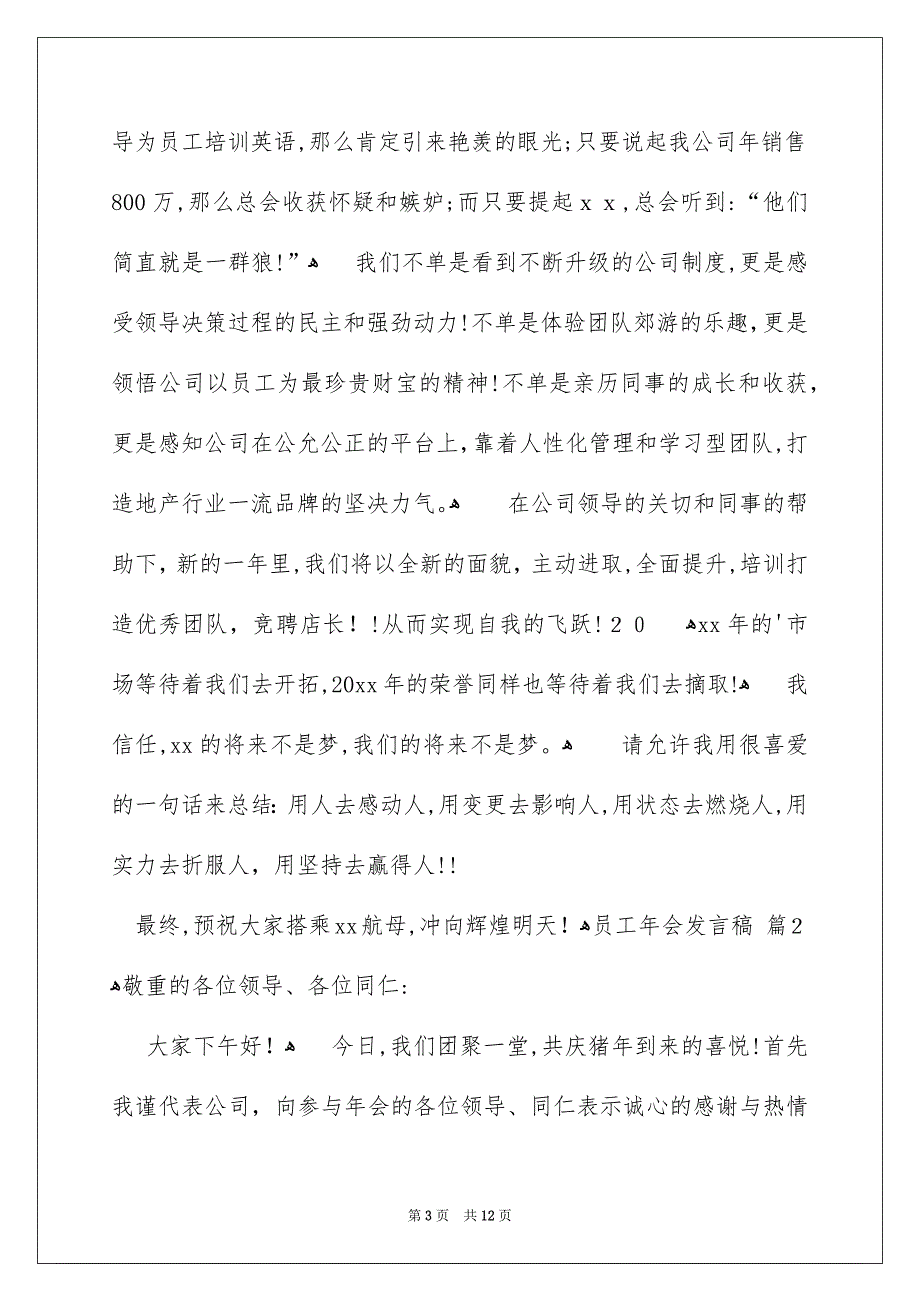 导为员工培训英语,那么肯定引来艳羡的眼光;只要说起我公司年销售
800 万,那么总会收获怀疑和嫉妒;而只要提起ｘｘ,总会听到:“他们
简直就是一群狼!”ﻫ 我们不单是看到不断升级的公司制度,更是感
受领导决策过程的民主和强劲动力!不单是体验团队郊游的乐趣，更是
领悟公司以员工为最珍贵财宝的精神!不单是亲历同事的成长和收获，
更是感知公司在公允公正的平台上，靠着人性化管理和学习型团队,打
造地产行业一流品牌的坚决力气。ﻫ 在公司领导的关切和同事的帮
助下，新的一年里,我们将以全新的面貌，主动进取,全面提升,培训打
造优秀团队，竞聘店长！!从而实现自我的飞跃!２０ ﻫxx 年的'市
场等待着我们去开拓,20xx 年的荣誉同样也等待着我们去摘取!ﻫ 我
信任,xx 的将来不是梦,我们的将来不是梦。ﻫ 请允许我用很喜爱
的一句话来总结：用人去感动人,用变更去影响人,用状态去燃烧人,用
实力去折服人，用坚持去赢得人!!
最终,预祝大家搭乘 xx 航母,冲向辉煌明天！ﻫ员工年会发言稿 篇2
ﻫ敬重的各位领导、各位同仁:
大家下午好！ﻫ 今日,我们团聚一堂,共庆猪年到来的喜悦!首先
我谨代表公司，向参与年会的各位领导、同仁表示诚心的感谢与热情
第 3 页 共 12 页